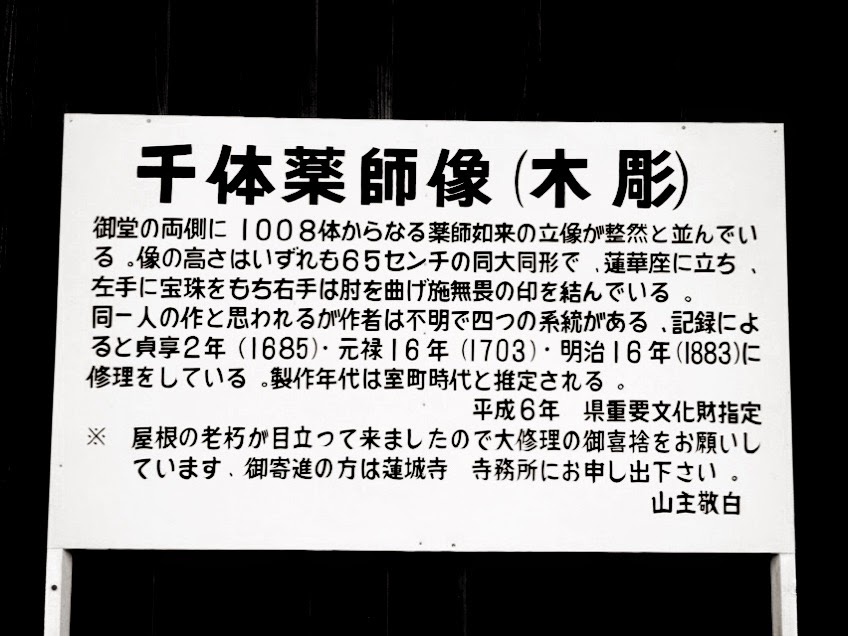 千体薬師像(木彫)
御堂の両側に1008体からなる薬師如来の立像が整然と並んでい
る。像の高さはいずれも65センチの同大同形で、蓮華座に立ち、
左手に宝珠をもち右手は肘を曲げ施無畏の印を結んでいる。
同一人の作と思われるが作者は不明で四つの系統がある、記録によ
ると貞享2年(1685)・元禄16年(1703)・明治16年(1883)に
修理をしている。製作年代は室町時代と推定される。
平成6年 県重要文化財指定
※ 屋根の老朽が目立って来ましたので大修理の御喜捨をお願いし
ています、御寄進の方は蓮城寺 寺務所にお申し出下さい。
山主敬白